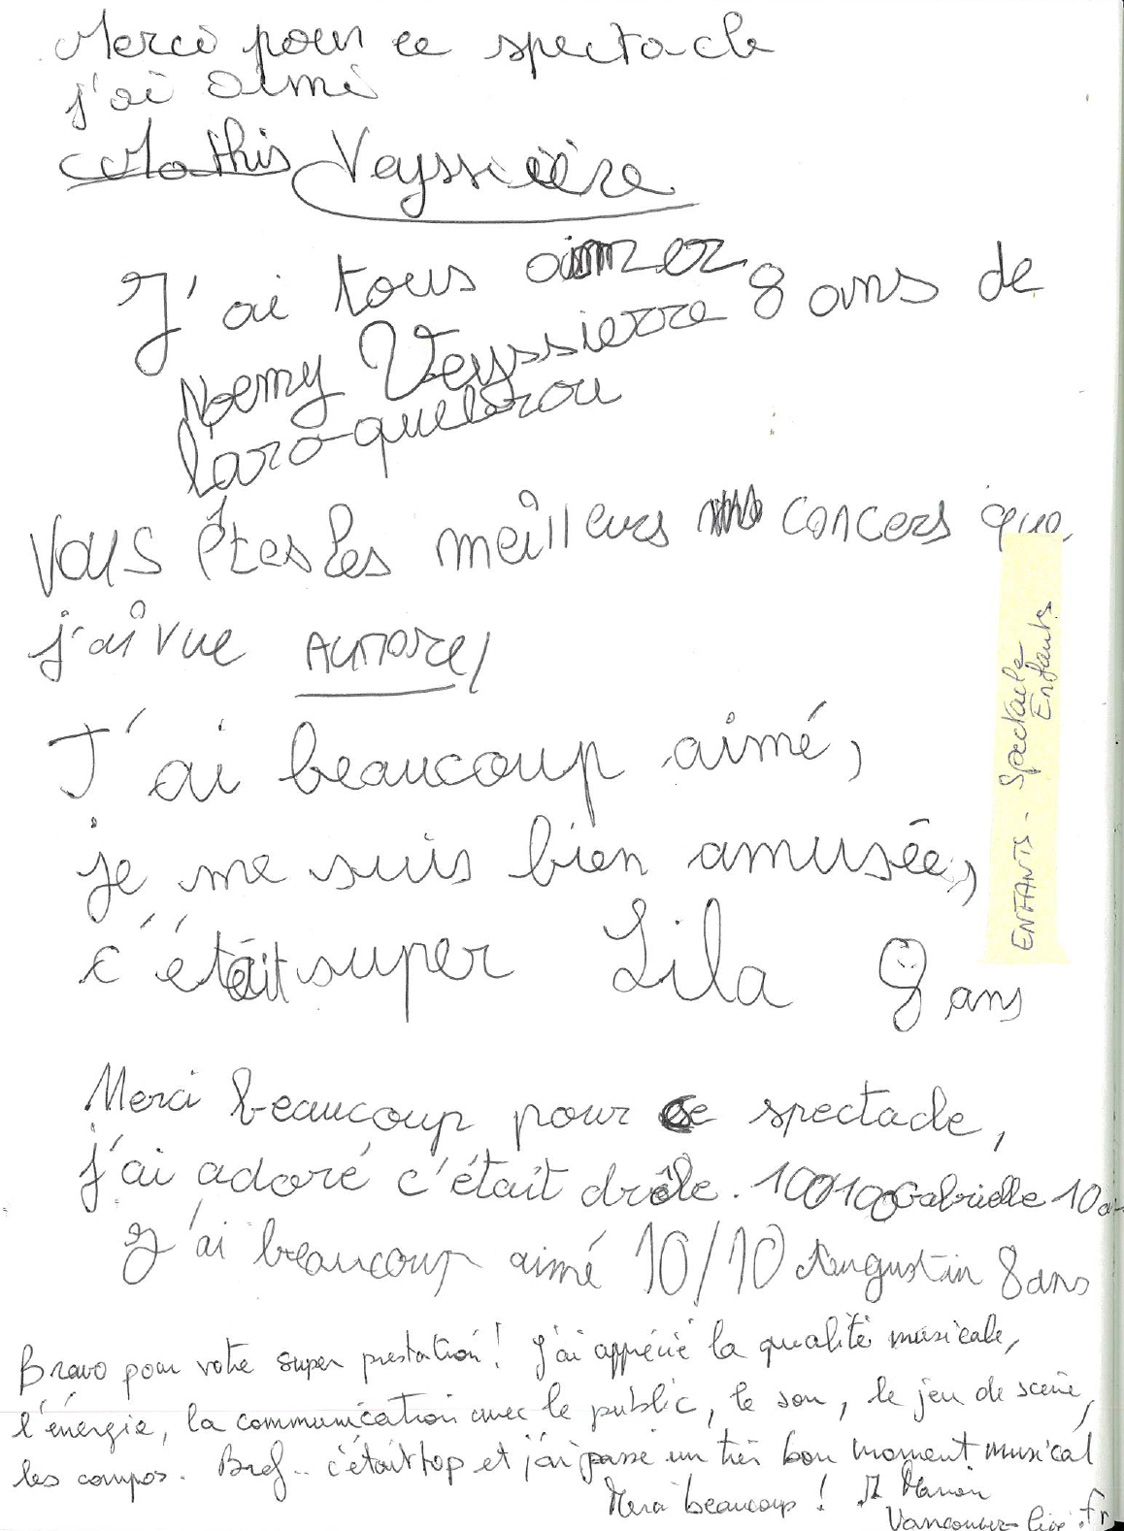 Merci pour ce spectacle
j'ai aimé
Mathis Veyssière
J'ai tous aimer
Noemy Veyssierre 8 ans de
laroquebrou
Vous êtes les meilleurs concers que
j'ai vue Aurore
J'ai beaucoup aimé,
je me suis bien amusée,
c'était super Lila 9 ans
ENFANTS - Spectacle
Enfants
Merci beaucoup pour ce spectacle,
j'ai adoré c'était drôle. 100/100 Gabrielle 10 a
J'ai beaucoup aimé 10/10 Augustin 8 ans
Bravo pour votre super prestation ! J'ai apprécié la qualité musicale,
l'énergie, la communication avec le public, le son, le jeu de scène,
les compos. Bref.. c'était top et j'ai passé un très bon moment musical
Merci beaucoup ! Marion
Vancouver-live.fr